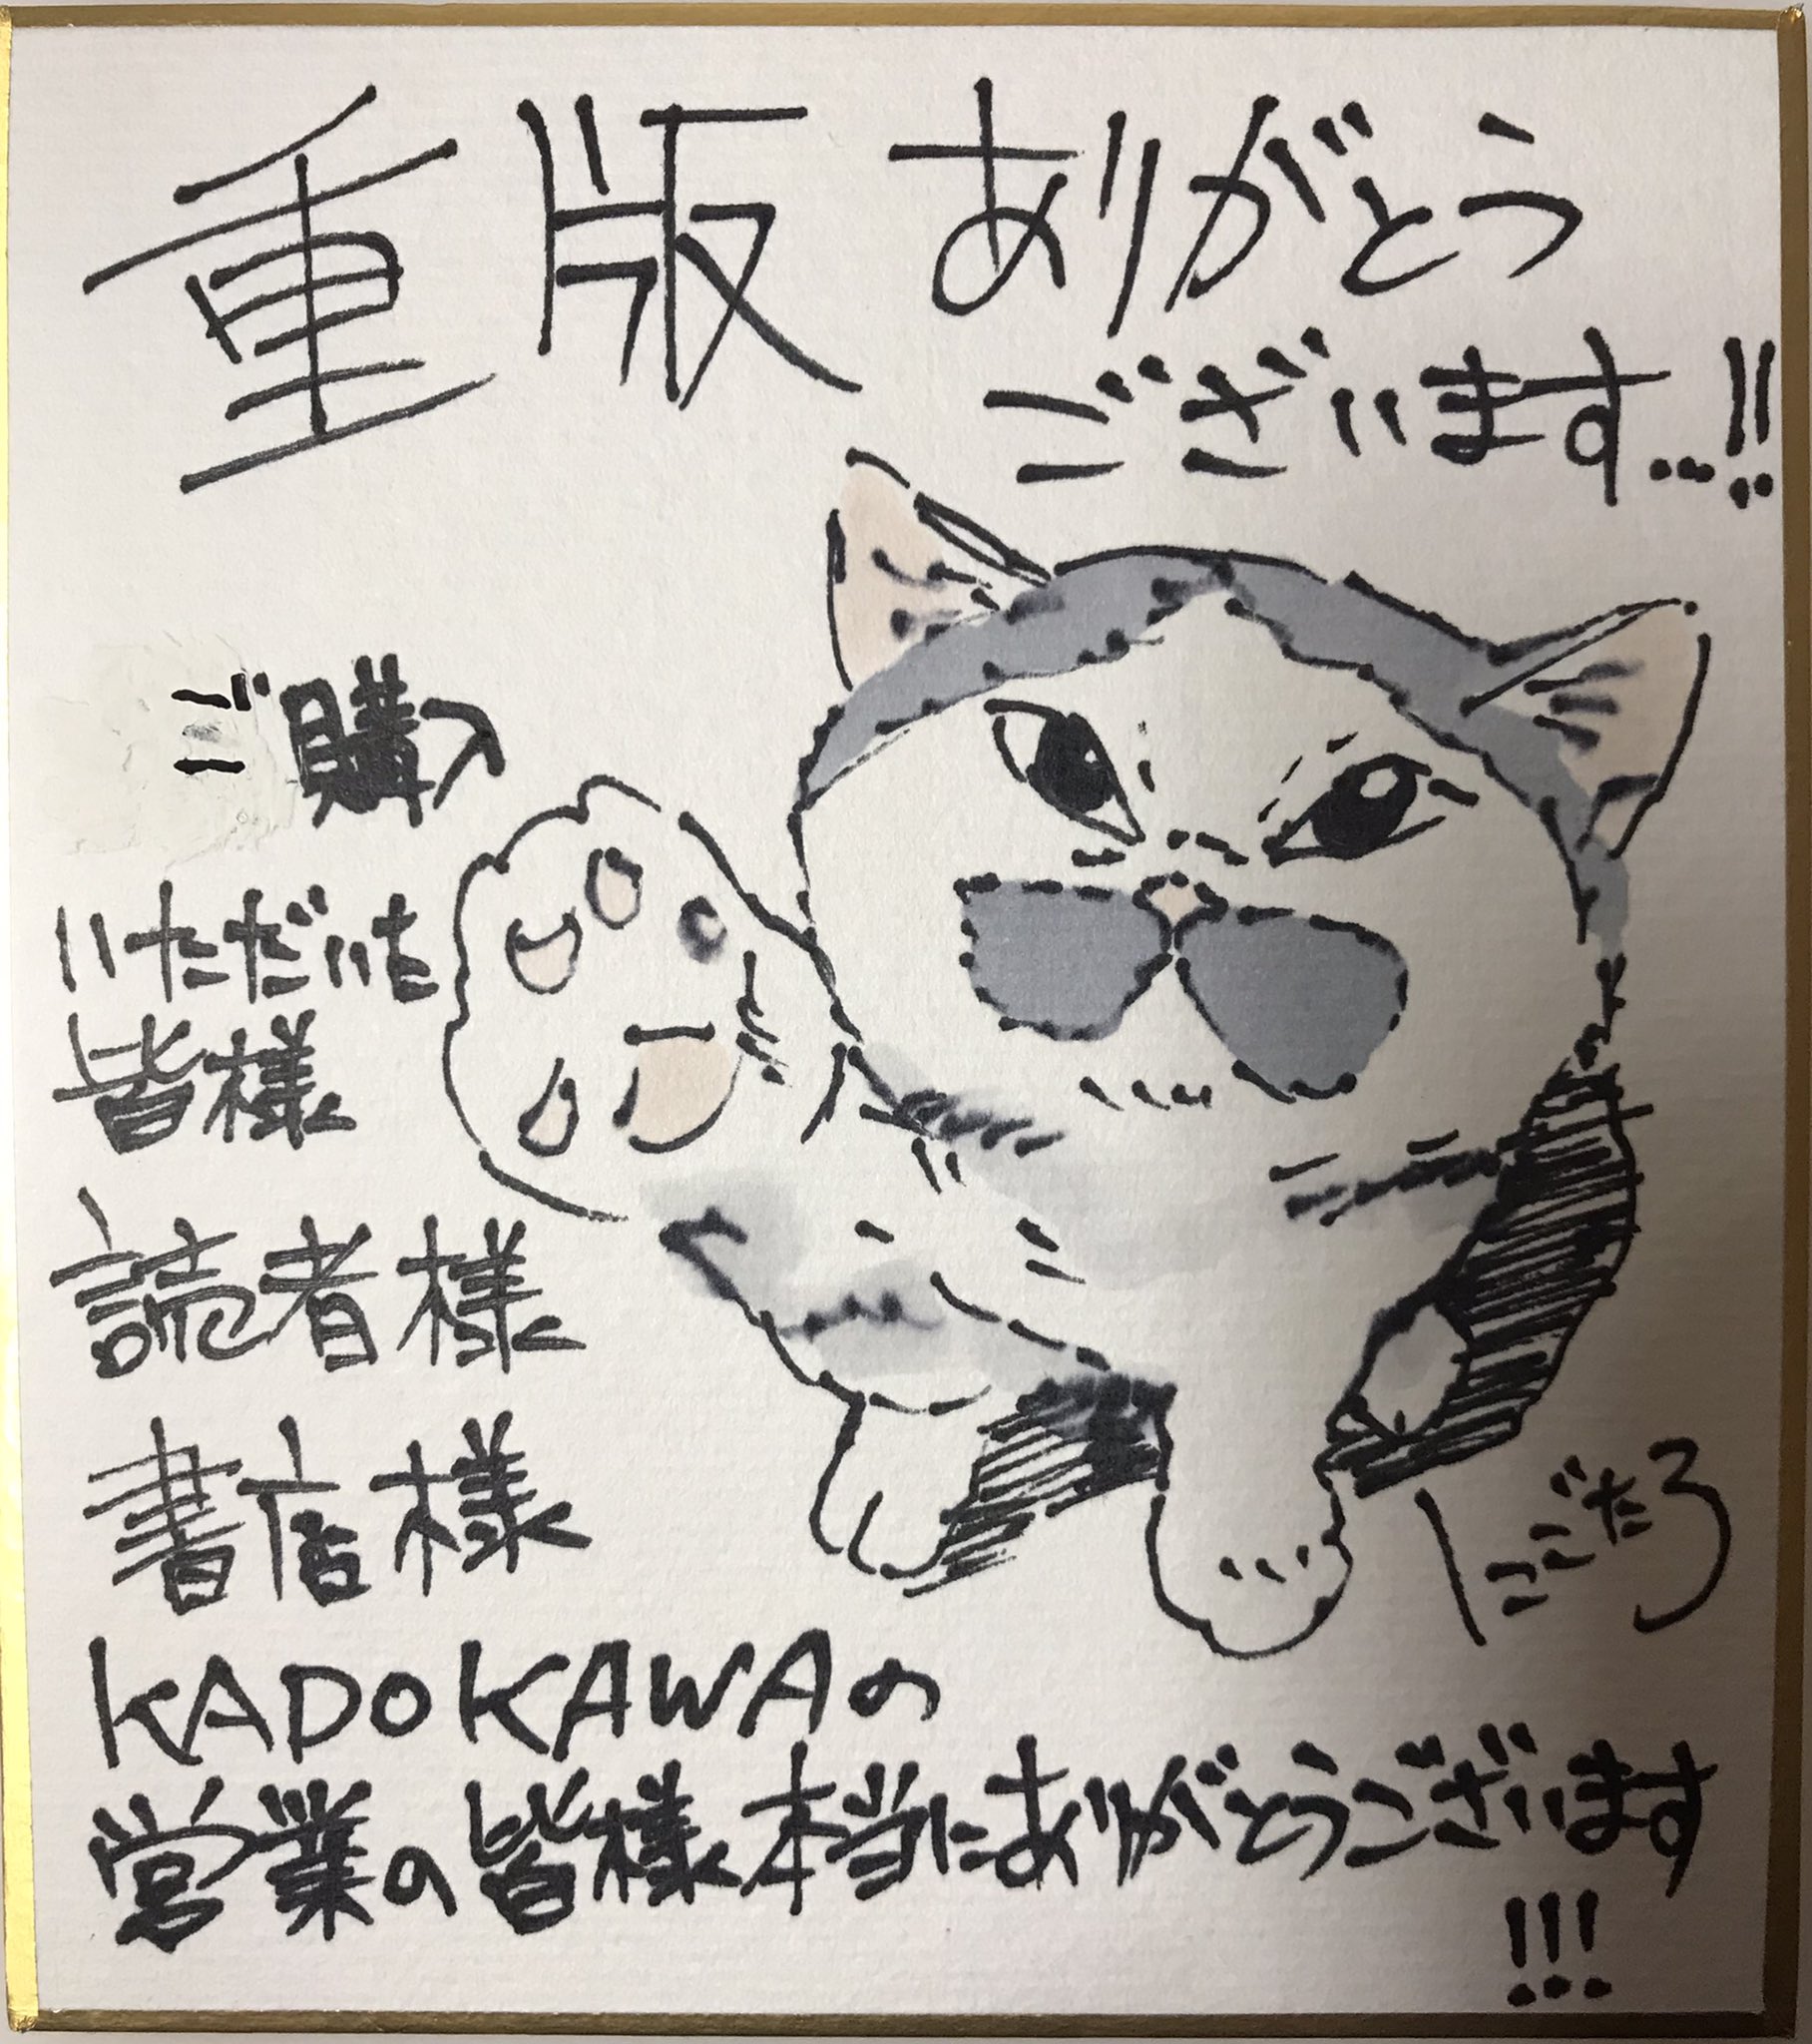 重版 ありがとう
ございます…!!
ご購入
いただいた
皆様
読者様
書店様
KADOKAWAの
営業の皆様本当にありがとうございます
!!!
にごたろ